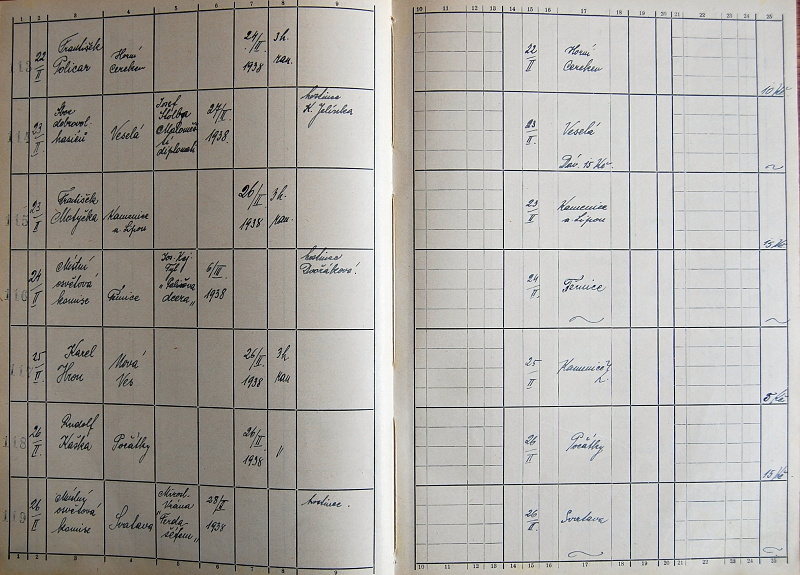 1 2 3 4 5 6 7 8 9
113 22/II František Policar Horní Cerekev 24/II 1938 3h. ran.
114 23/II Sbor dobrovol. hasičů Veselá Josef Štolba Maloměstští diplomati 27/II 1938 hostinec K. Jelínka
115 23/II Františka Motyčka Kamenice n. Lipou 26/II 1938 3h. ran.
116 24/II Místní osvětová komise Jos. Kaj. Tyl „Paličova dcera" 6/III 1938 hostinec Dvořákové.
117 25/II Karel Hron Nová Ves 26/II 1938 3h. ran
118 26/II Rudolf Kaška Počátky 26/II 1938 "
119 26/II Místní osvětová komise Svatava 28/II 1938 hostinec.
1 2 3 4 5 6 7 8 9
10 11 12 13 14 15 16 17 18 19 20 21 22 23 24 25
22/II Horní Cerekev 10 Kč
23/II Veselá
Dáv. 15 Kč.
23/II Kamenice n. Lipou 15 Kč
24/II
25/II Kamenice 5 Kč
26/II Počátky 15 Kč
26/II Svatava
10 11 12 13 14 15 16 17 18 19 20 21 22 23 24 25